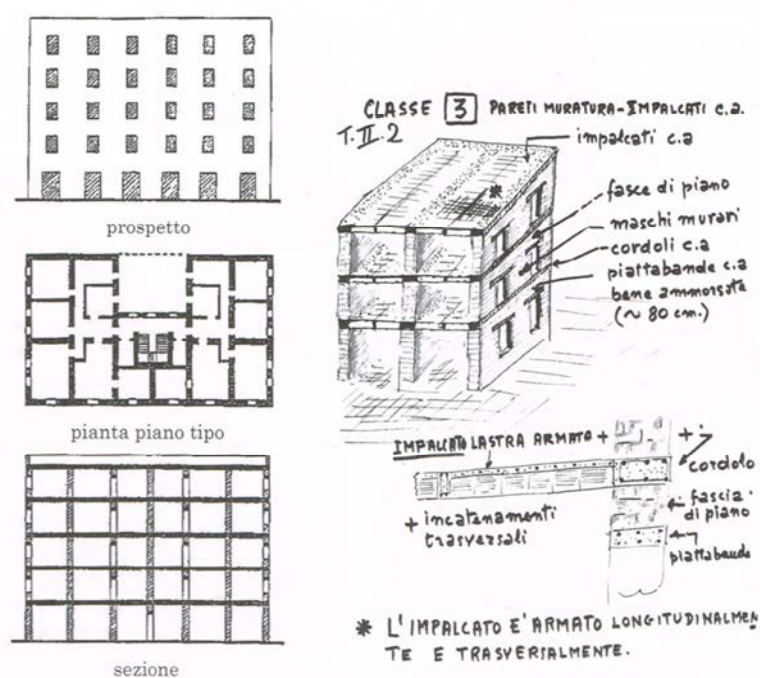 prospetto
pianta piano tipo
sezione
CLASSE 3 PARETI MURATURA-IMPALCATI c.a.
T.II.2
impalcati c.a
*
fasce di piano
maschi murari
cordoli c.a
piattabande c.a
bene ammorsate
(~ 80 cm.)
IMPALCATO LASTRA ARMATO +
+ incatenamenti
trasversali
cordolo
fascia
di piano
piattabande
* L'IMPALCATO E' ARMATO LONGITUDINALMEN
TE E TRASVERSALMENTE.